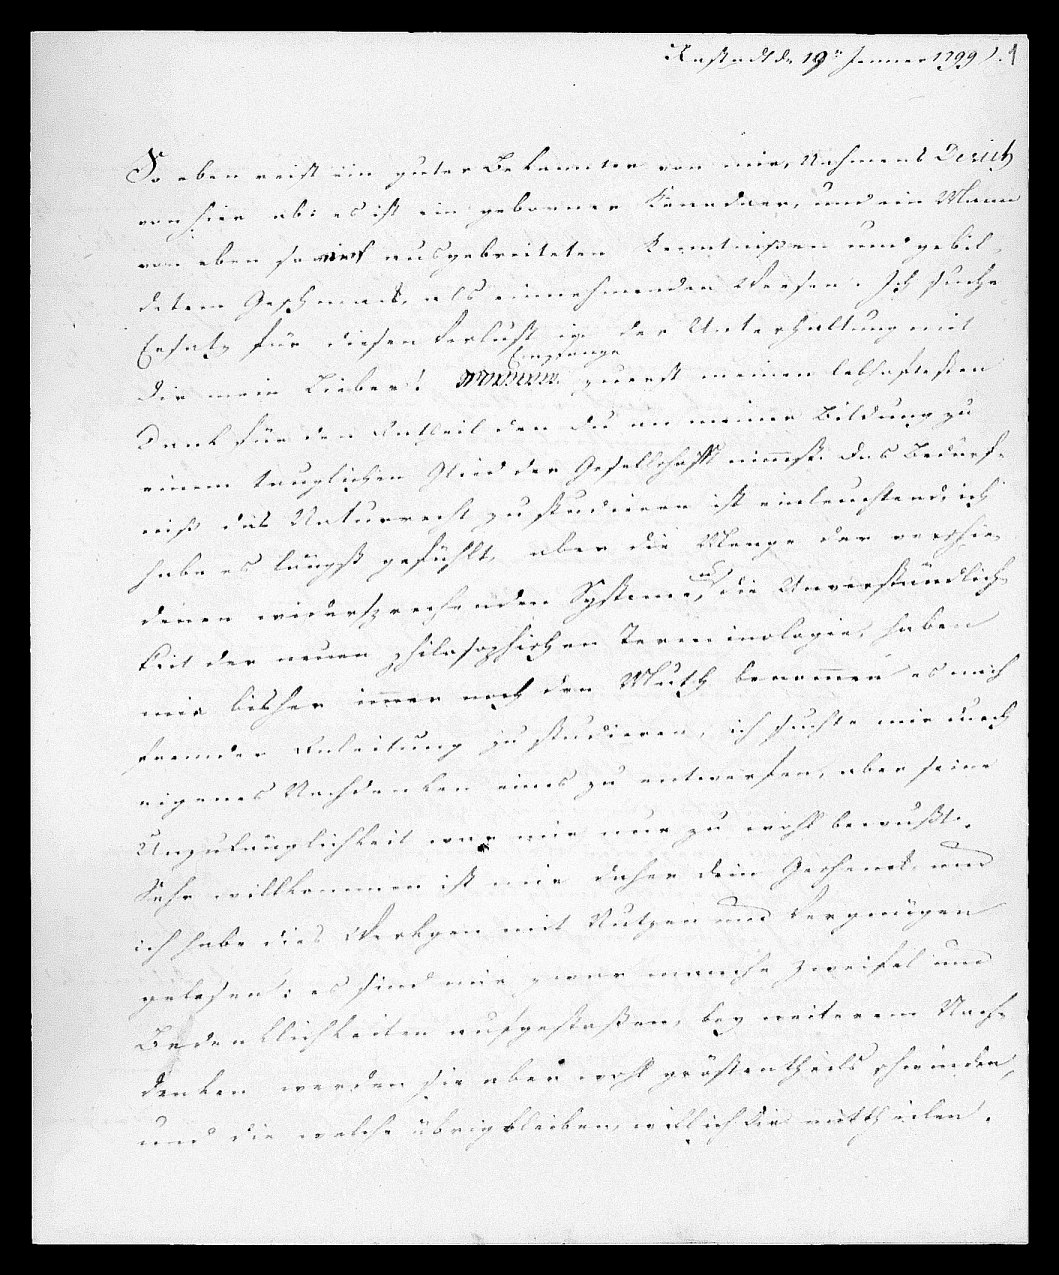 Rastadt d. 19n Jenner 1799).
So eben reist ein guter Bekannter von mir, Nahmens Derich
von hier ab: es ist ein geborner Neundaer, und ein Mann
von eben so viel ausgebreiteten Kenntnißen und gebil-
detem Geschmack, als einnehmenden Wesen. Ich suche
Ersatz für diesen Verlust in der Unterhaltung mit
Dir mein Lieber! Empfange zuerst meinen lebhaftesten
Dank für den Antheil den Du an meiner Bildung zu
einem tauglichen Glied der Gesellschafft nimmst. Das Bedürf-
niß das Naturrecht zu studieren ist einleuchtend, ich
habe es längst gefühlt, aber die Menge der verschie-
denen widersprechenden Systeme, u. die Unverständlich-
keit der neuen philosophischen Terminologie, haben
mir bisher immer noch den Muth benommen es nach
fremder Anleitung zu studieren, ich suchte mir durch
eigenes Nachdenken eines zu entwerfen, aber seine
Unzulänglichkeit war mir nur zu wohl bewußt.
Sehr willkommen ist mir daher dein Geschenk, und
ich habe dies Werkgen mit Nutzen und Vergnügen
gelesen: es sind mir zwar manche Zweifel und
Bedenklichkeiten aufgestoßen, bey weiterem Nach-
denken werden sie aber wohl größtentheils schwinden,
und die welche übrigbleiben, will ich dir mittheilen.